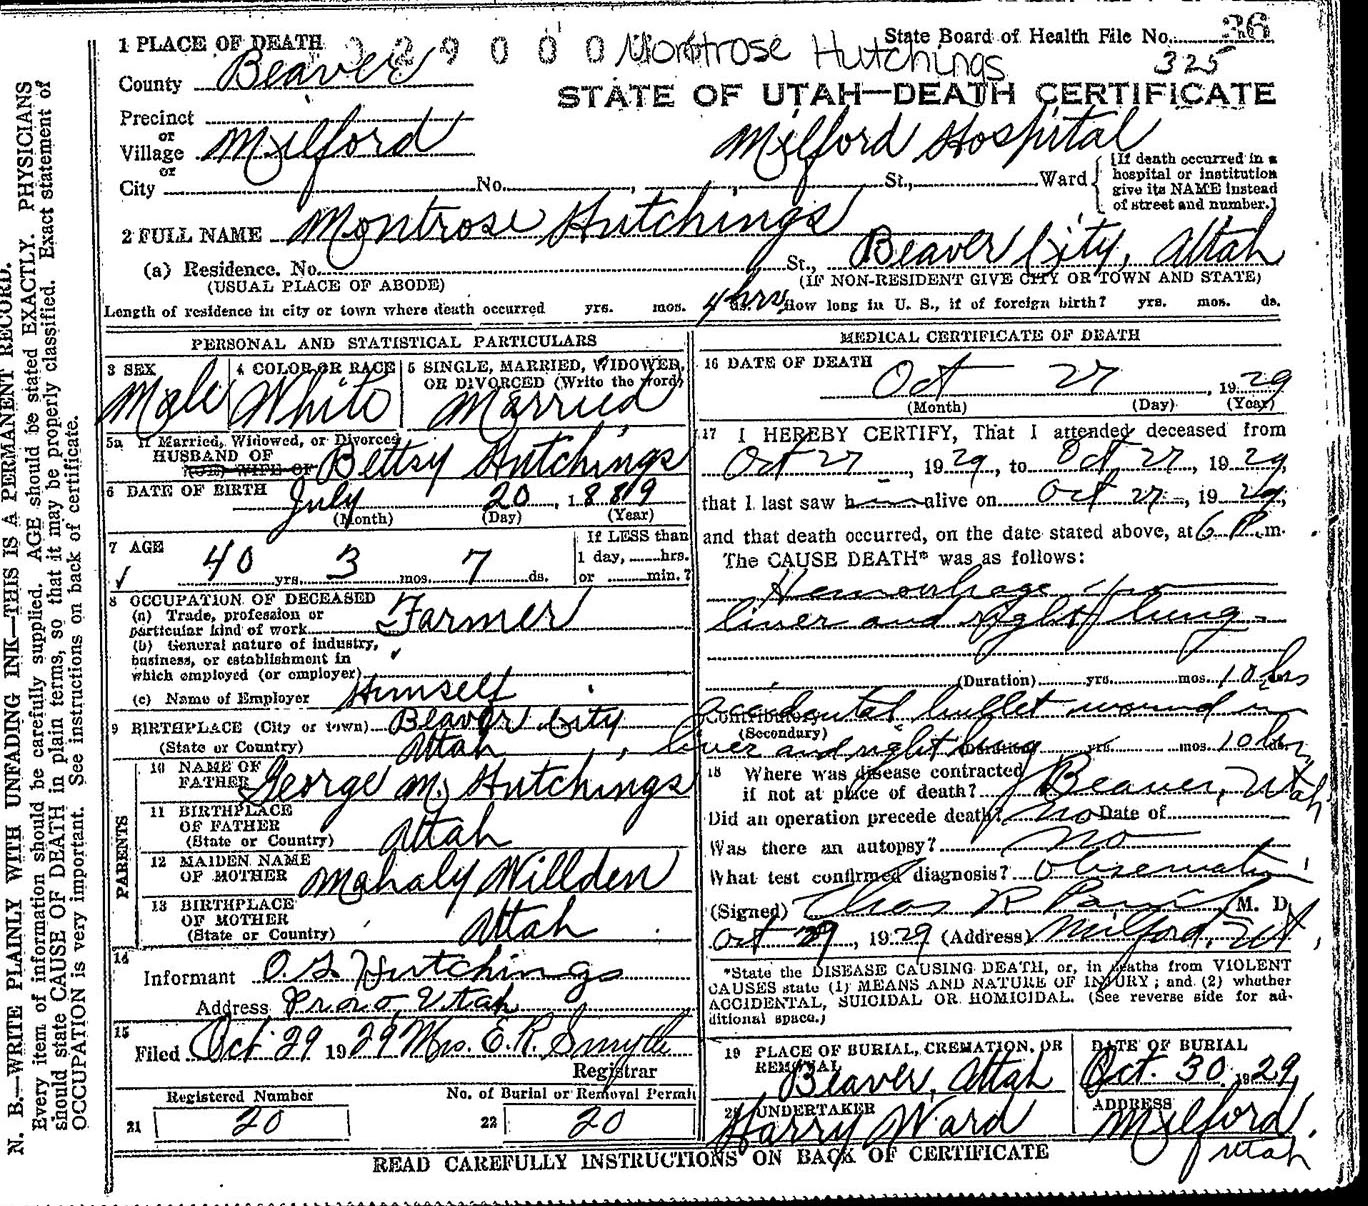 State Board of Health File No. 36
1 PLACE OF DEATH 2 9 0 0 0 Montrose Hutchings 325
County Beaver
STATE OF UTAH—DEATH CERTIFICATE
Precinct
or
Village Milford Milford Hospital
or
City No. St., Ward
[If death occurred in a
hospital or institution
give its NAME instead
of street and number.]
2 FULL NAME Montrose Hutchings
(a) Residence. No. St., Beaver City, Utah
(USUAL PLACE OF ABODE) (IF NON-RESIDENT GIVE CITY OR TOWN AND STATE)
Length of residence in city or town where death occurred yrs. mos. 4 hrs ds. How long in U. S., if of foreign birth? yrs. mos. ds.
PERSONAL AND STATISTICAL PARTICULARS
3 SEX
Male
4 COLOR OR RACE
White
5 SINGLE, MARRIED, WIDOWED,
OR DIVORCED (Write the word)
Married
5a If Married, Widowed, or Divorced
HUSBAND OF
(OR) WIFE OF Bettsy Hutchings
6 DATE OF BIRTH July 20, 1889
(Month) (Day) (Year)
7 AGE
40 yrs. 3 mos. 7 ds.
If LESS than
1 day, hrs.
or min.?
8 OCCUPATION OF DECEASED
(a) Trade, profession or
particular kind of work Farmer
(b) General nature of industry,
business, or establishment in
which employed (or employer)
(c) Name of Employer Himself
9 BIRTHPLACE (City or town) Beaver City
(State or Country) Utah
PARENTS
10 NAME OF
FATHER George M. Hutchings
11 BIRTHPLACE
OF FATHER
(State or Country) Utah
12 MAIDEN NAME
OF MOTHER Mahaly Willden
13 BIRTHPLACE
OF MOTHER
(State or Country) Utah
14
Informant O. S. Hutchings
Address Provo, Utah
15
Filed Oct 29 1929 Mrs. E. R. Smyth
Registrar
Registered Number
21 20
No. of Burial or Removal Permit
22 20
MEDICAL CERTIFICATE OF DEATH
16 DATE OF DEATH
Oct 27, 1929
(Month) (Day) (Year)
17 I HEREBY CERTIFY, That I attended deceased from
Oct 27, 1929, to Oct 27, 1929,
that I last saw him alive on Oct 27, 1929,
and that death occurred, on the date stated above, at 6 P.m.
The CAUSE DEATH* was as follows:
Hemorrhage from
liver and right lung
(Duration) yrs. mos. 10 hrs
Contributory accidental bullet wound in
(Secondary)
liver and right lung (Duration) yrs. mos. 10 hrs
18 Where was disease contracted
if not at place of death? Beaver, Utah
Did an operation precede death? no Date of
Was there an autopsy? no
What test confirmed diagnosis? Observation
(Signed) Chas R M. D.
Oct 29, 1929 (Address) Milford, Ut,
*State the DISEASE CAUSING DEATH, or, in deaths from VIOLENT
CAUSES state (1) MEANS AND NATURE OF INJURY; and (2) whether
ACCIDENTAL, SUICIDAL OR HOMICIDAL. (See reverse side for ad-
ditional space.)
19 PLACE OF BURIAL, CREMATION, OR
REMOVAL
Beaver, Utah
DATE OF BURIAL
Oct. 30 1929
20 UNDERTAKER
Harry Ward
ADDRESS
Milford.
Utah
READ CAREFULLY INSTRUCTIONS ON BACK OF CERTIFICATE
N. B.—WRITE PLAINLY WITH UNFADING INK—THIS IS A PERMANENT RECORD.
Every item of information should be carefully supplied. AGE should be stated EXACTLY. PHYSICIANS
should state CAUSE OF DEATH in plain terms, so that it may be properly classified. Exact statement of
OCCUPATION is very important. See instructions on back of certificate.